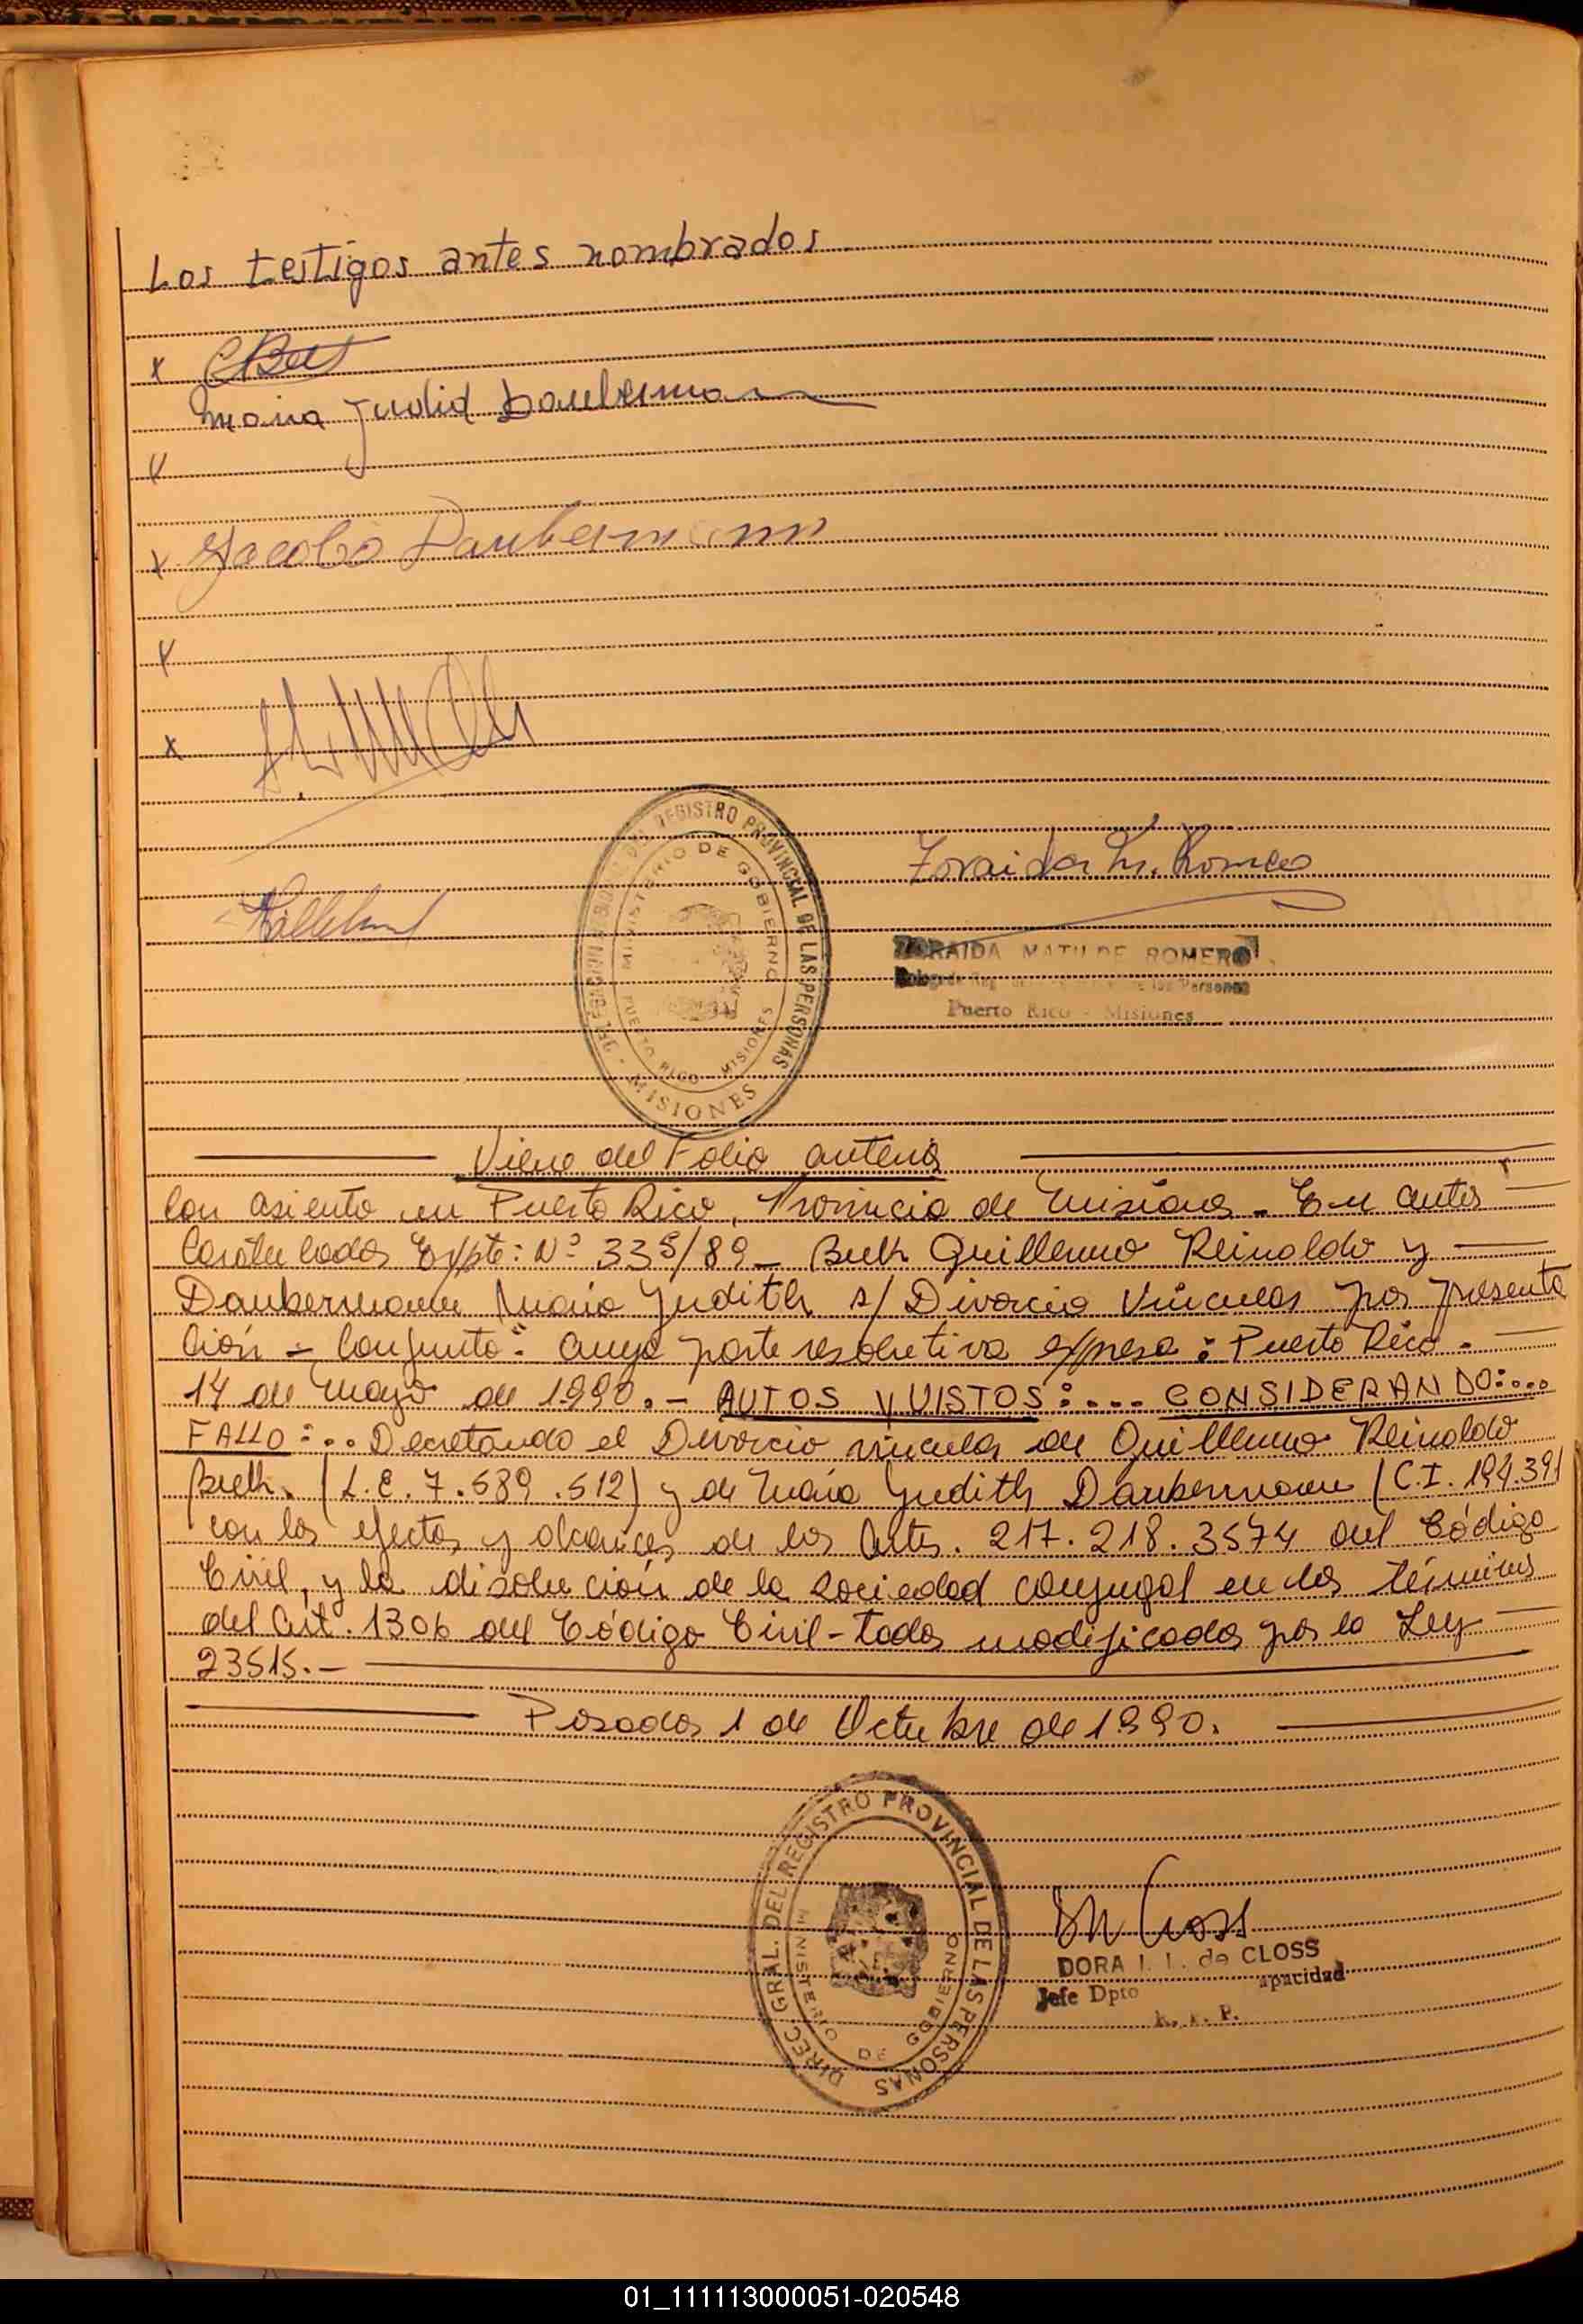 Los testigos antes nombrados
x
Maria Judid Dauberman
x
x Jacobo Daubermann
x
x
DEL REGISTRO PROVINCIAL DE LAS PERSONAS
MINISTERIO DE GOBIERNO
PUERTO RICO - MISIONES
MISIONES
Zoraida M. Romero
ZORAIDA MATILDE ROMERO
de las Personas
Puerto Rico - Misiones
Viene del Folio anterior
con asiento en Puerto Rico, Provincia de Misiones. En autos
Caratulados Expte: Nº 335/89 - Beck Guillermo Reinaldo y
Daubermann María Judith s/ Divorcio Vincular por presenta
ción - Conjunta". cuya parte resolutiva expresa: Puerto Rico.
14 de Mayo de 1990. - AUTOS Y VISTOS: ... CONSIDERANDO: ...
FALLO: ... Decretando el Divorcio vincular de Guillermo Reinaldo
Beck. (L.E. 7.589.512) y de María Judith Daubermann (C.I. 194.391
con los efectos y alcances de los Arts. 217. 218. 3574 del Código
Civil, y la disolución de la sociedad conyugal en los términos
del Art. 1306 del Código Civil - todos modificados por la Ley
23515. -
Posadas 1 de Octubre de 1990.
DIREC. GRAL. DEL REGISTRO PROVINCIAL DE LAS PERSONAS
MINISTERIO DE GOBIERNO
DORA I. L. de CLOSS
Jefe Dpto apacidad
R. P. P.
01_111113000051-020548